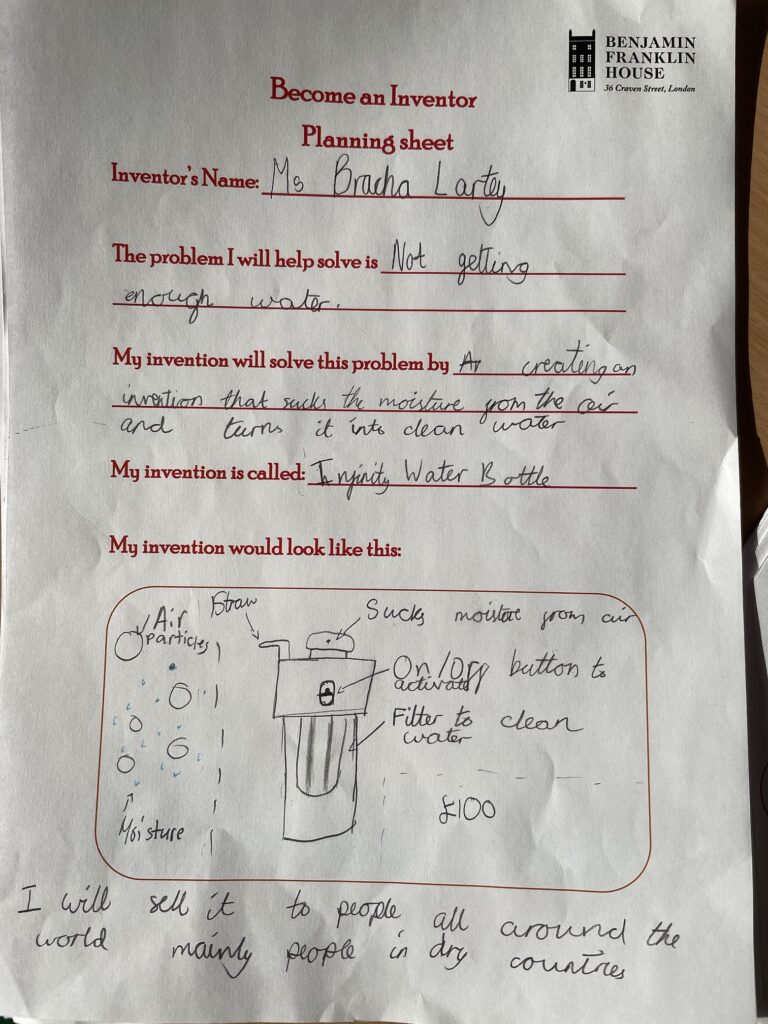 BENJAMIN
FRANKLIN
HOUSE
36 Craven Street, London
Become an Inventor
Planning sheet
Inventor's Name: Ms Bracha Lartey
The problem I will help solve is Not getting
enough water.
My invention will solve this problem by creating an
invention that sucks the moisture from the air
and turns it into clean water
My invention is called: Infinity Water Bottle
My invention would look like this:
Air
particles
Straw
Sucks moisture from air
On/Off button to
activate
Filter to clean
water
£100
Moisture
I will sell it to people all around the
world mainly people in dry countries